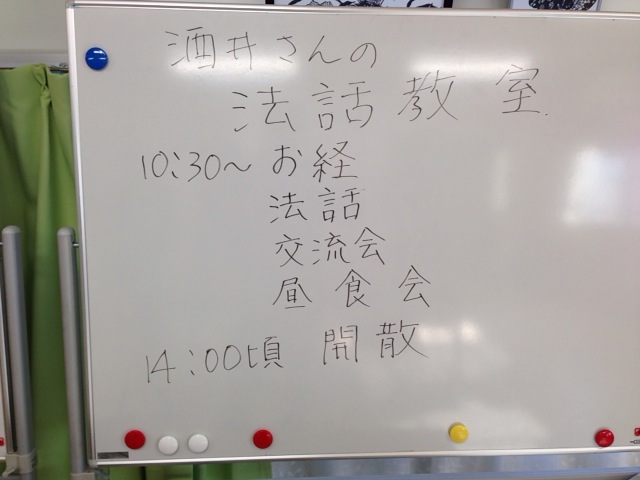 酒井さんの
法話教室
10:30～お経
法話
交流会
昼食会
14:00頃 開散